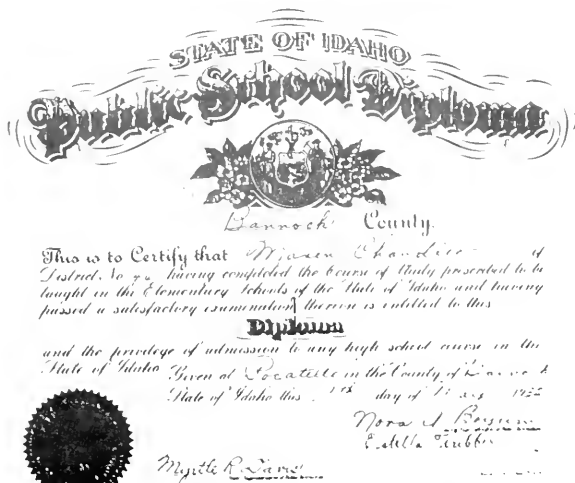 STATE OF IDAHO
Public School Diploma
Bannock County.
This is to Certify that Chandler of
District No having completed the Course of Study prescribed to be
taught in the Elementary Schools of the State of Idaho and having
passed a satisfactory examination therein is entitled to this
Diploma
and the privilege of admission to any high school course in the
State of Idaho Given at Pocatello in the County of Bannock
State of Idaho this day of
Nora
Estella
Myrtle R. Davis